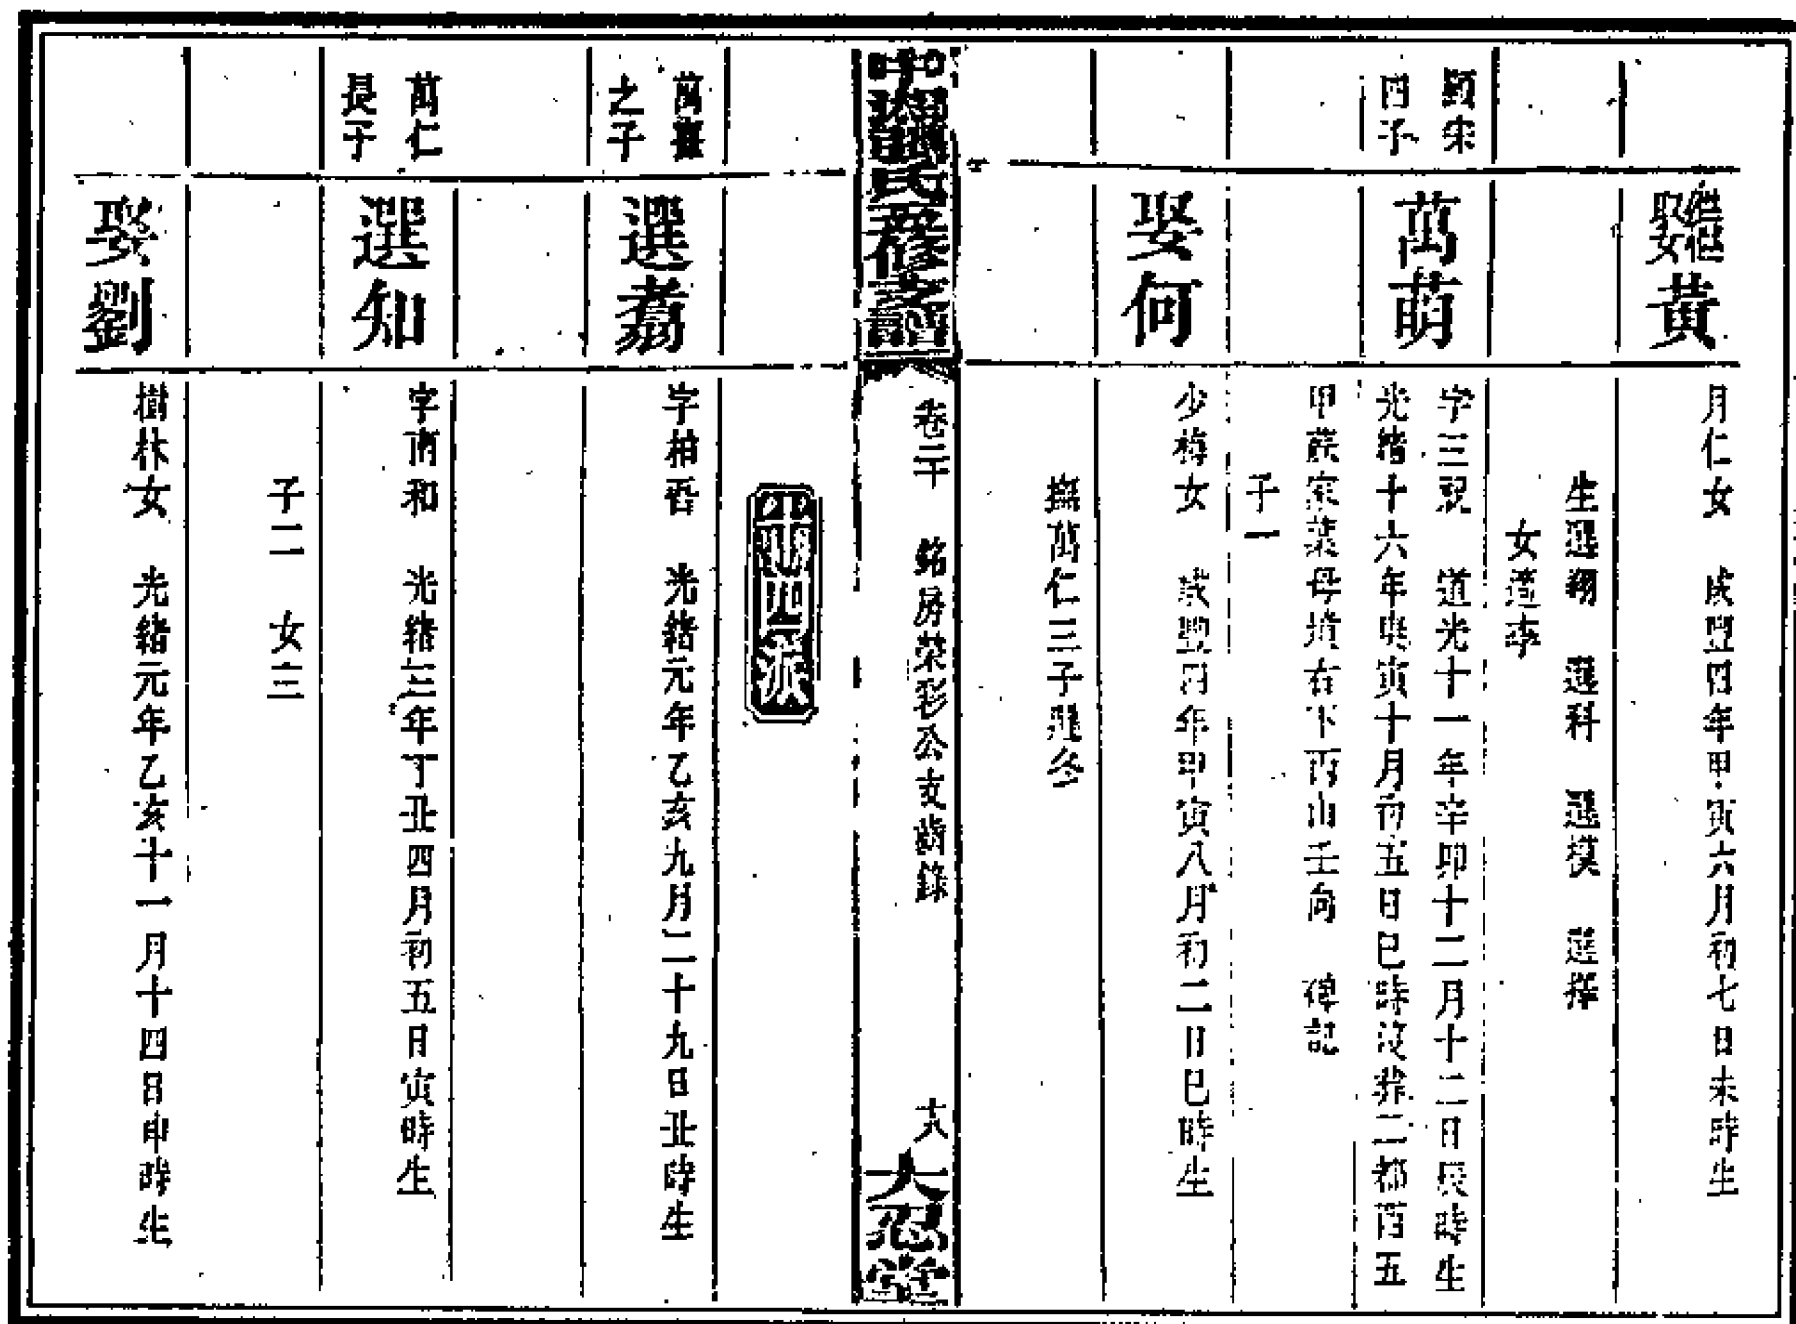 繼娶黃
月仁女 咸豐四年甲寅六月初七日未時生
生選翔 選科 選模 選擇
女適李
四子
萬萌
字三 道光十一年辛卯十二月十二日辰時生
光緒十六年庚寅十月初五日巳時沒葬二都 五
甲 家 母墳右下丙山壬向 碑記
子一
娶何
少梅女 咸豐四年甲寅八月初二日巳時生
撫萬仁三子選冬
氏 修 譜
卷二十 銘房榮彩公支齒錄 十八
大忍堂
卅四派
之子
選
字柏香 光緒元年乙亥九月二十九日丑時生
萬仁
長子
選知
字南和 光緒三年丁丑四月初五日寅時生
子二 女三
娶劉
樹林女 光緒元年乙亥十一月十四日申時生